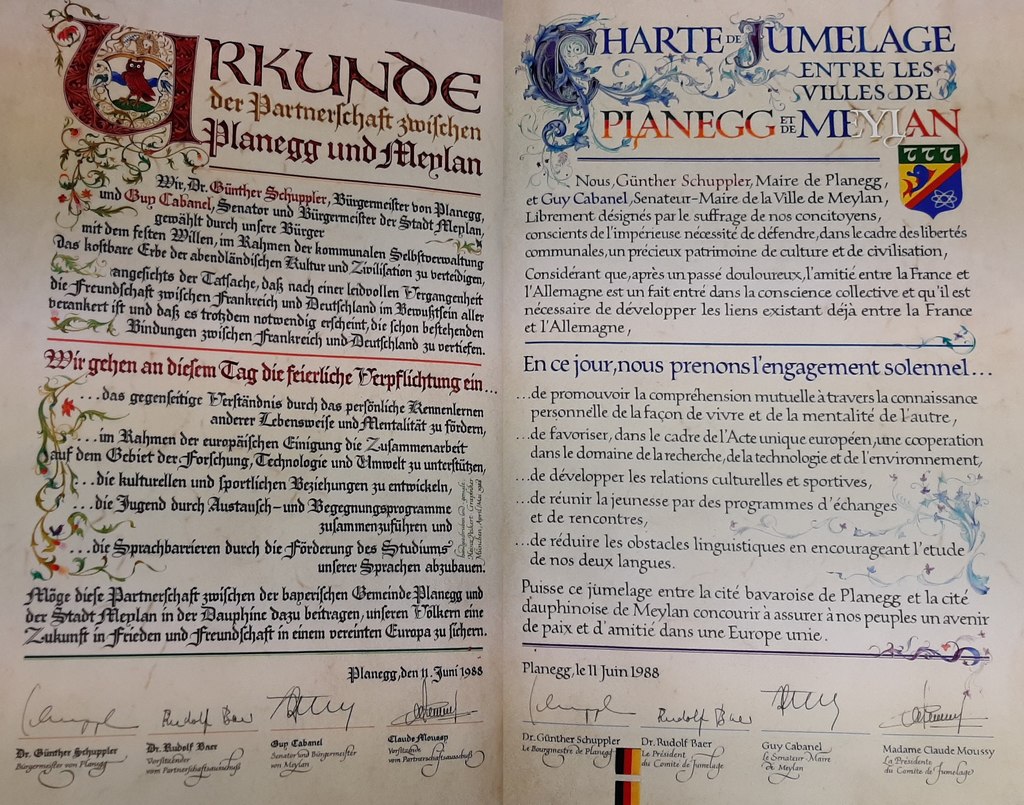 URKUNDE
der Partnerschaft zwischen
Planegg und Meylan
Wir, Dr. Günther Schuppler, Bürgermeister von Planegg,
und Guy Cabanel, Senator und Bürgermeister der Stadt Meylan,
gewählt durch unsere Bürger
mit dem festen Willen, im Rahmen der kommunalen Selbstverwaltung
das kostbare Erbe der abendländischen Kultur und Zivilisation zu verteidigen,
angesichts der Tatsache, daß nach einer leidvollen Vergangenheit
die Freundschaft zwischen Frankreich und Deutschland im Bewußtsein aller
verankert ist und daß es trotzdem notwendig erscheint, die schon bestehenden
Bindungen zwischen Frankreich und Deutschland zu vertiefen.
Wir gehen an diesem Tag die feierliche Verpflichtung ein...
...das gegenseitige Verständnis durch das persönliche Kennenlernen
anderer Lebensweise und Mentalität zu fördern,
...im Rahmen der europäischen Einigung die Zusammenarbeit
auf dem Gebiet der Forschung, Technologie und Umwelt zu unterstützen,
...die kulturellen und sportlichen Beziehungen zu entwickeln,
...die Jugend durch Austausch- und Begegnungsprogramme
zusammenzuführen und
...die Sprachbarrieren durch die Förderung des Studiums
unserer Sprachen abzubauen.
Möge diese Partnerschaft zwischen der bayerischen Gemeinde Planegg und
der Stadt Meylan in der Dauphine dazu beitragen, unseren Völkern eine
Zukunft in Frieden und Freundschaft in einem vereinten Europa zu sichern.
Planegg, den 11. Juni 1988
Rudolf Baer
Dr. Günther Schuppler
Bürgermeister von Planegg
Dr. Rudolf Baer
Vorsitzender
vom Partnerschaftsausschuß
Guy Cabanel
Senator und Bürgermeister
von Meylan
Claude Moussy
Vorsitzende
vom Partnerschaftsausschuß
CHARTE DE JUMELAGE
ENTRE LES
VILLES DE
PLANEGG ET DE MEYLAN
Nous, Günther Schuppler, Maire de Planegg,
et Guy Cabanel, Senateur-Maire de la Ville de Meylan,
Librement désignés par le suffrage de nos concitoyens,
conscients de l'impérieuse nécessité de défendre, dans le cadre des libertés
communales, un précieux patrimoine de culture et de civilisation,
Considérant que, après un passé douloureux, l'amitié entre la France et
l'Allemagne est un fait entré dans la conscience collective et qu'il est
nécessaire de développer les liens existant déjà entre la France
et l'Allemagne,
En ce jour, nous prenons l'engagement solennel...
...de promouvoir la compréhension mutuelle à travers la connaissance
personnelle de la façon de vivre et de la mentalité de l'autre,
...de favoriser, dans le cadre de l'Acte unique européen, une cooperation
dans le domaine de la recherche, de la technologie et de l'environnement,
...de développer les relations culturelles et sportives,
...de réunir la jeunesse par des programmes d'échanges
et de rencontres,
...de réduire les obstacles linguistiques en encourageant l'étude
de nos deux langues.
Puisse ce jumelage entre la cité bavaroise de Planegg et la cité
dauphinoise de Meylan concourir à assurer à nos peuples un avenir
de paix et d'amitié dans une Europe unie.
Planegg, le 11 Juin 1988
Rudolf Baer
Dr. Günther Schuppler
Le Bourgmestre de Planegg
Dr. Rudolf Baer
Le Président
du Comité de Jumelage
Guy Cabanel
Le Senateur-Maire
de Meylan
Madame Claude Moussy
La Présidente
du Comité de Jumelage